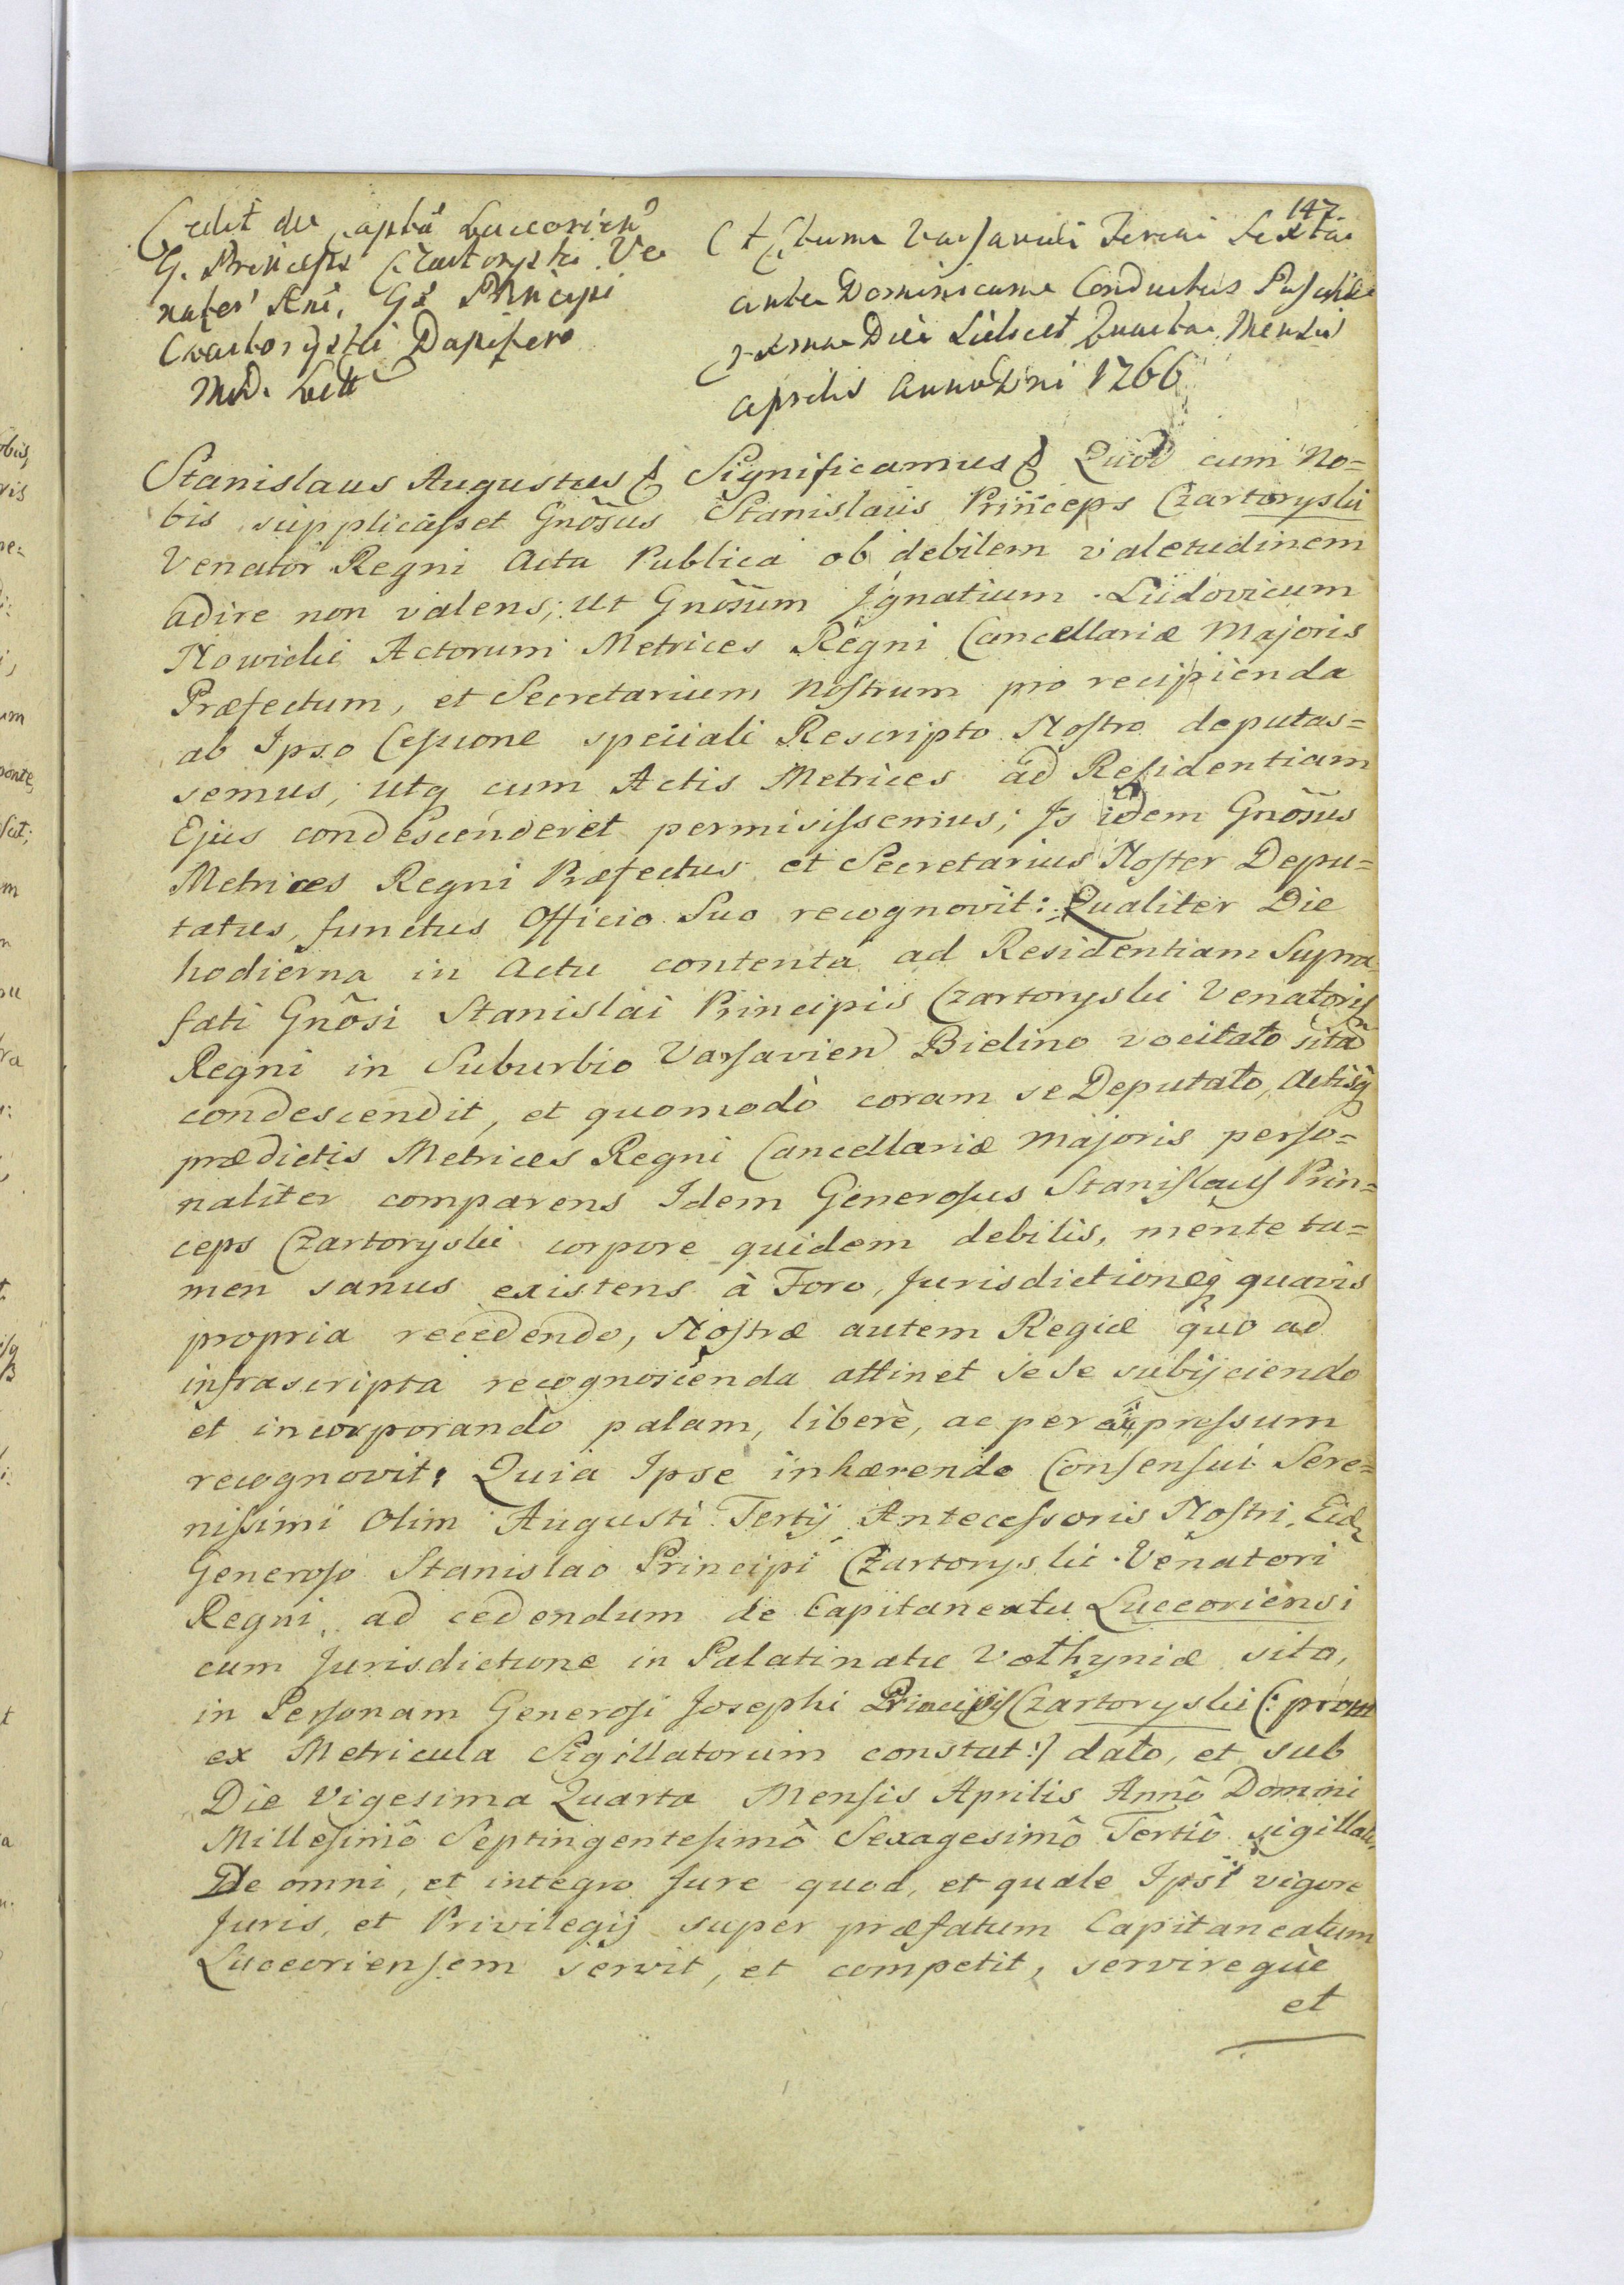 147
Cedit de Captu Luccorien
G. Princeps Czartoryski Ve
nator Rni, Gs Principi
Czartoryski Dapifero
MD. Litt
Actum Varsaviæ Feria Sexta
ante Dominicam Conductus Paschæ
proxima Die scilicet Quarta Mensis
Aprilis Anno Dni 1766
Stanislaus Augustus & Significamus & Quod cum No=
bis supplicasset Gnosus Stanislaus Princeps Czartoryski
Venator Regni Acta Publica ob debilem valetudinem
adire non valens; ut Gnosum Ignatium Ludovicum
Nowicki Actorum Metrices Regni Cancellariæ Majoris
Præfectum, et Secretarium Nostrum pro recipienda
ab Ipso Cessione speciali Rescripto Nostro deputas=
semus, utq cum Actis Metrices ad Residentiam
Ejus condescenderet permisissemus; Is idem Gnosus
Metrices Regni Præfectus et Secretarius Noster Depu=
tatus, functus Officio Suo recognovit: Qualiter Die
hodierna in Actu contenta ad Residentiam Supra
fati Gnosi Stanislai Principis Czartoryski Venatoris
Regni in Suburbio Varsavien Bielino vocitato sita
condescendit, et quomodò coram se Deputato, Actisq
prædictis Metrices Regni Cancellariæ Majoris perso=
naliter comparens Idem Generosus Stanislaus Prin=
ceps Czartoryski corpore quidem debilis, mente ta=
men sanus existens à Foro, Jurisdictioneq quavis
propria recedendo, Nostræ autem Regiæ quo ad
infrascripta recognoscenda attinet sese subijciendo
et incorporando palam, liberè, ac per expressum
recognovit: Quia Ipse inhærendo Consensui Sere=
nissimi Olim Augusti Tertij Antecessoris Nostri, Eid
Generoso Stanislao Principi Czartoryski Venatori
Regni, ad cedendum de Capitaneatu Luceoriensi
cum Jurisdictione in Palatinatu Volhyniæ sito,
in Personam Generosi Josephi Principis Czartoryski (: prout
ex Metricula Sigillatorum constat :) dato, et sub
Die Vigesima Quarta Mensis Aprilis Annô Domini
Millesimô Septingentesimô Sexagesimô Tertiô sigillato,
De omni, et integro Jure quod, et quale Ipsi vigore
Juris, et Privilegij super præfatum Capitaneatum
Luceoriensem servit, et competit, servirequè
et